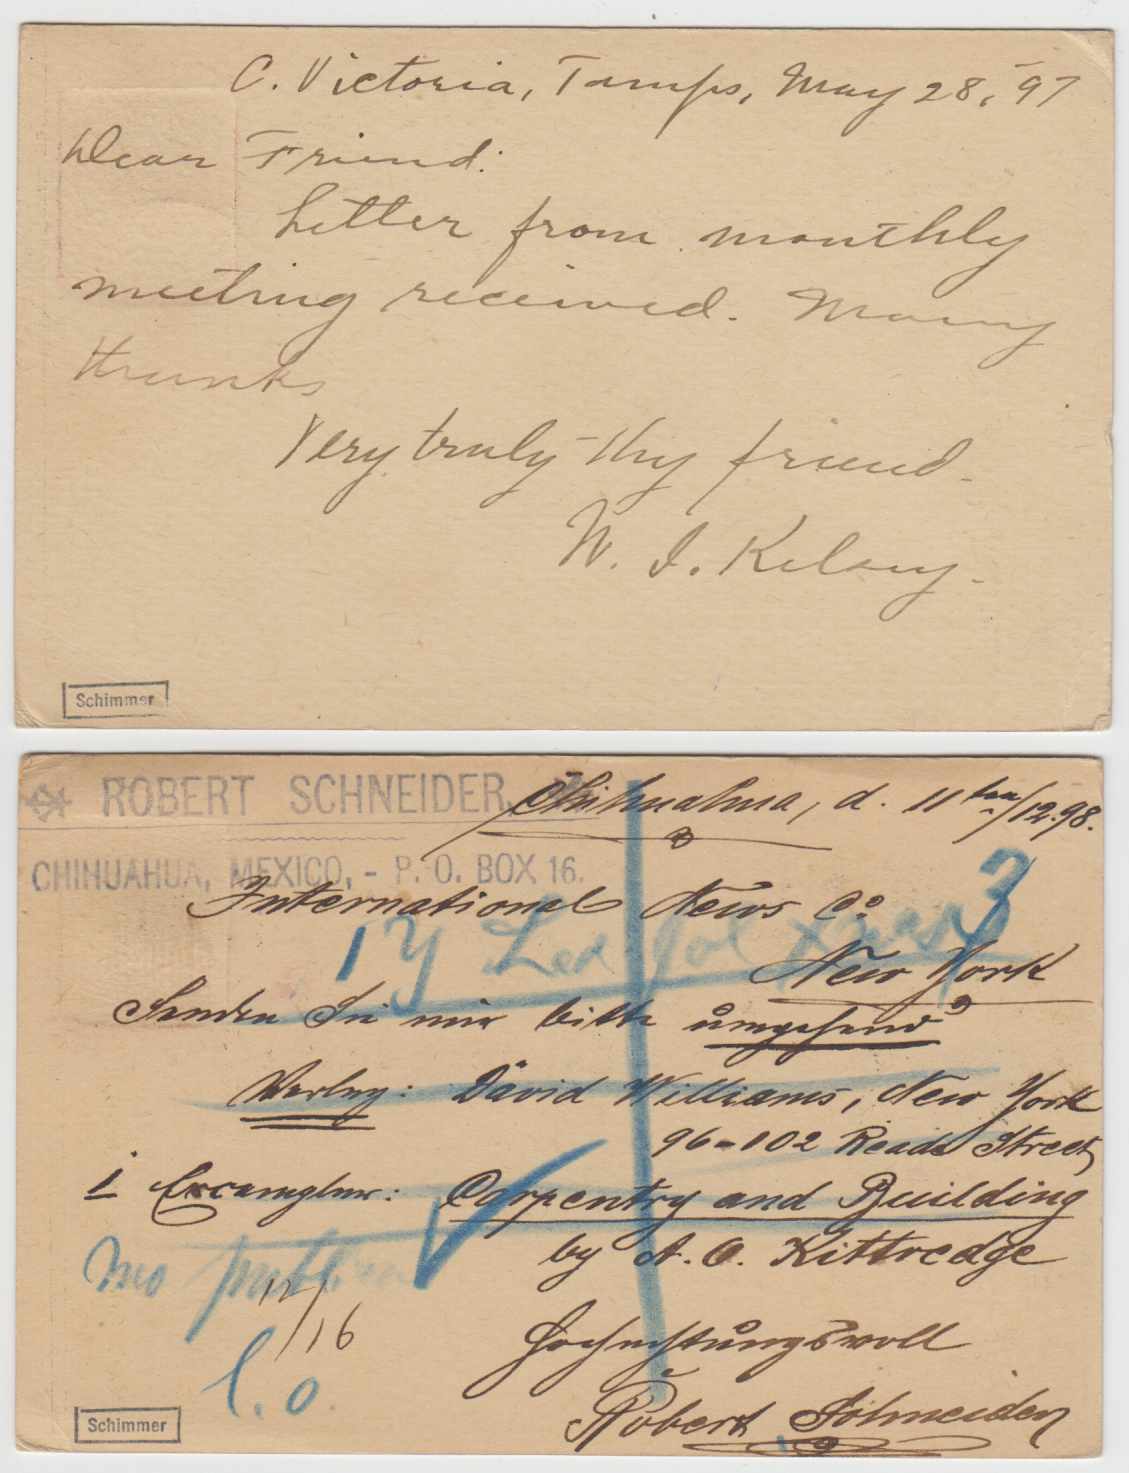 C. Victoria, Tamps, May 28, '97
Dear Friend:
Letter from monthly
meeting received. Many
thanks
Very truly thy friend.
W. I. Kelsey.
Schimmer
ROBERT SCHNEIDER,
Chihuahua, d. 11 /12.98.
CHIHUAHUA, MEXICO, - P. O. BOX 16.
International News Co.
New York
Senden Sie mir bitte umgehend
Verlag: David Williams, New York
96-102 Reade Street
1 Exemplar: Carpentry and Building
by A. O. Kittredge
12/16
Hochachtungsvoll
Robert Schneider
Schimmer